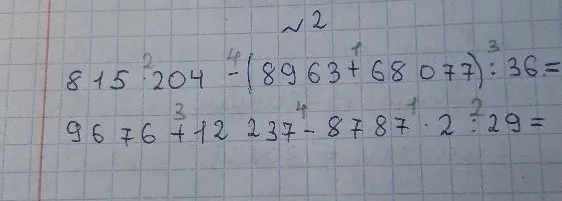 № 2
815 · 204 - (8963 + 68 077) : 36 =
9676 + 12 237 - 8787 · 2 : 29 =